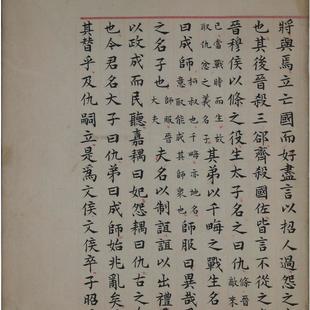 將興焉立亡國而好盡言以招人過怨之
也其後晉殺三郤齊殺國佐皆言不從之
晉穆侯以條之役生太子名之曰仇條晉
敵來
已當戰時而生故
取仇忿之義名子
其弟以千晦之戰生名
曰成師
桓叔也千晦亦地名
意取能成其師衆也
師服曰異哉
之名子也
師服晉
大夫
夫名以制誼誼以出禮
以政成而民聽嘉耦曰妃怨耦曰仇古之
也今君名大子曰仇弟曰成師始兆亂矣
其替乎及仇嗣立是爲文侯文侯卒子昭